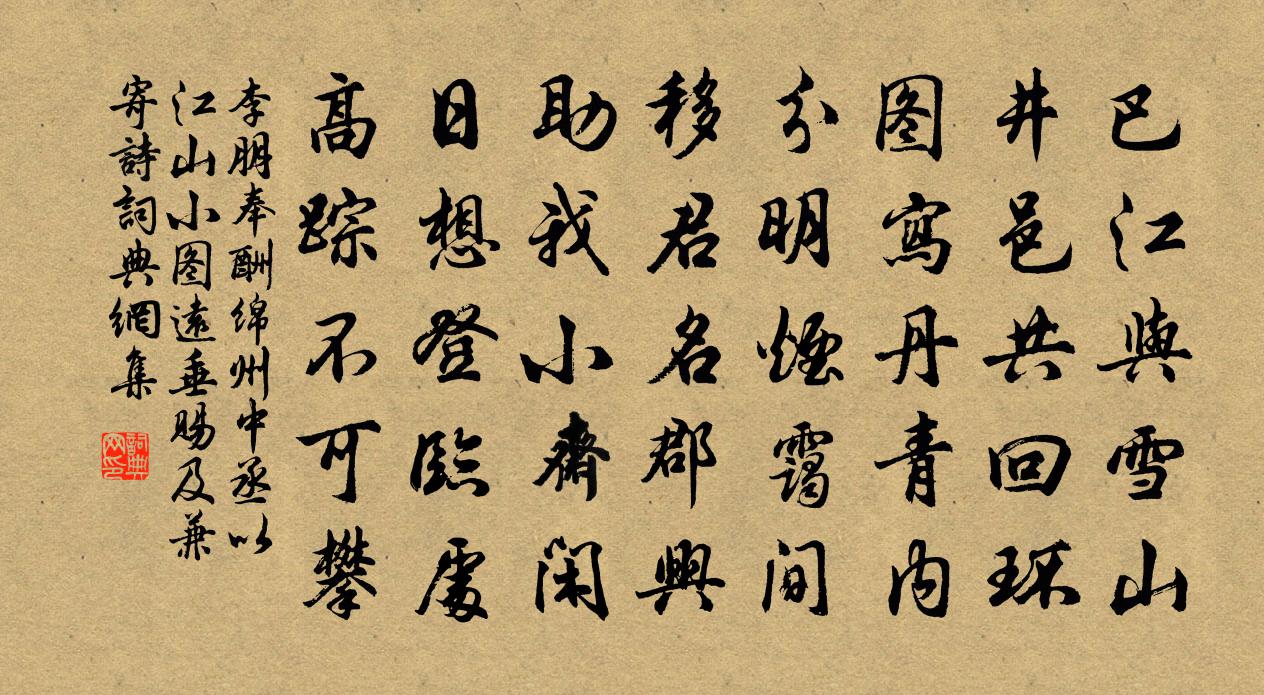 巴江與雪山
井邑共回环
图寫丹青内
分明煙靄间
移君名郡興
助我小齋闲
日想登臨處
高踪不可攀
李朋奉酬绵州中丞以
江山小图遠垂賜及兼
寄詩詞典網集
詞典网印